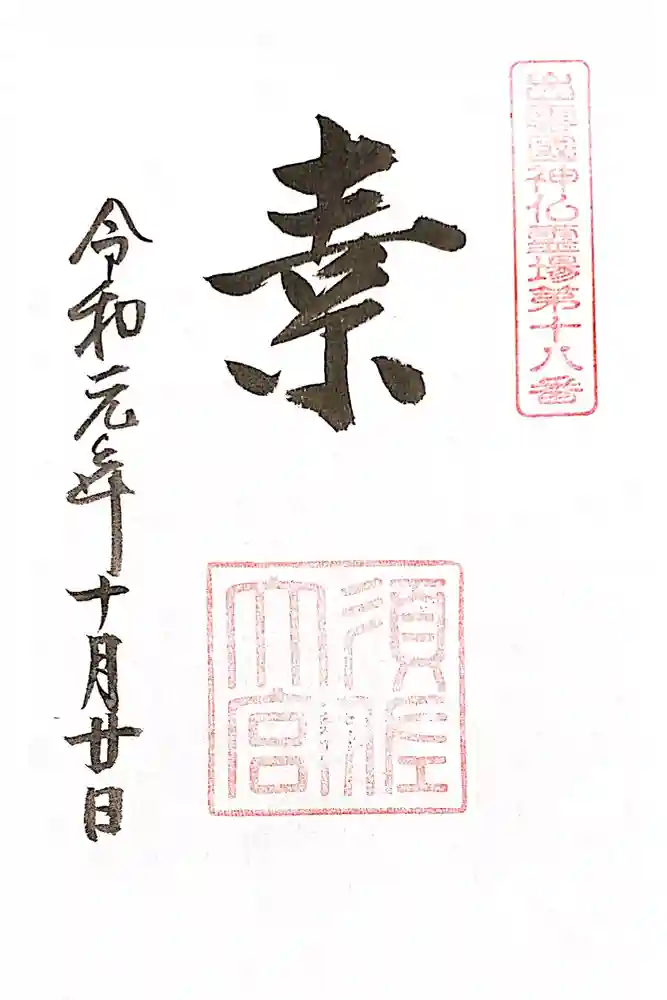 出雲國神仏霊場第十八番
素
須佐
大宮
令和元年十月廿日